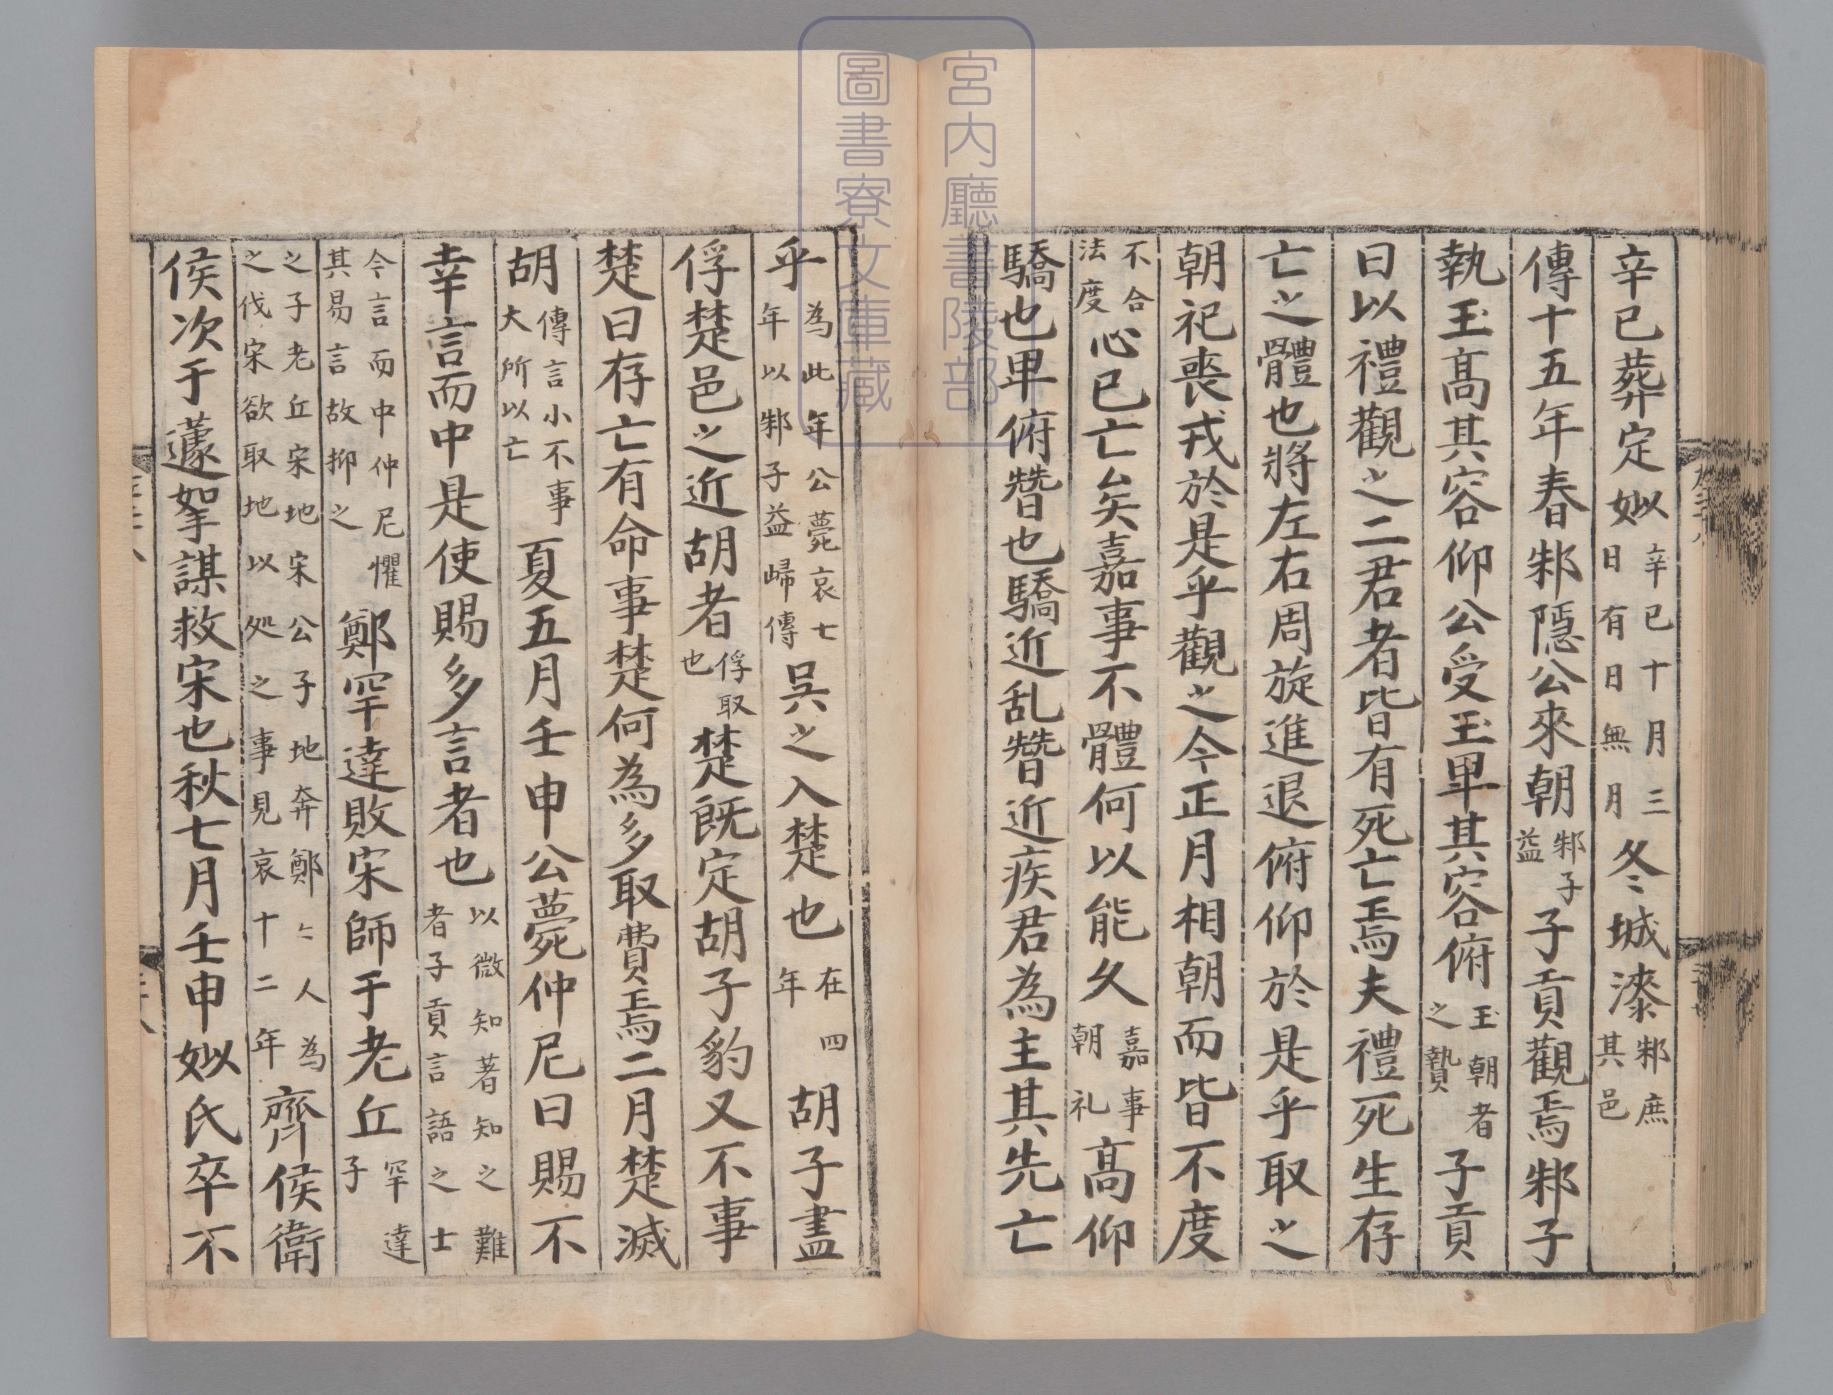 辛巳葬定姒辛巳十月三日有日無月冬城漆邾庶其邑
傳十五年春邾隱公來朝邾子益子貢觀焉邾子
執玉髙其容仰公受玉卑其容俯玉朝者之贄子貢
曰以禮觀之二君者皆有死亡焉夫禮死生存
亡之體也將左右周旋進退俯仰於是乎取之
朝祀喪戎於是乎觀之今正月相朝而皆不度
不合法度心已亡矣嘉事不體何以能久嘉事朝礼髙仰
驕也卑俯替也驕近乱替近疾君為主其先亡
乎為此年公薨哀七年以邾子益歸傳吳之入楚也在四年胡子盡
俘楚邑之近胡者俘取也楚既定胡子豹又不事
楚曰存亡有命事楚何為多取費焉二月楚滅
胡傳言小不事大所以亡夏五月壬申公薨仲尼曰賜不
幸言而中是使賜多言者也以微知著知之難者子貢言語之士
今言而中仲尼懼其易言故抑之鄭罕達敗宋師于老丘罕達子
之子老丘宋地宋公子地奔鄭〻人為之伐宋欲取地以処之事見哀十二年齊侯衛
侯次于蘧挐謀救宋也秋七月壬申姒氏卒不
宮内廳書陵部
圖書寮文庫藏